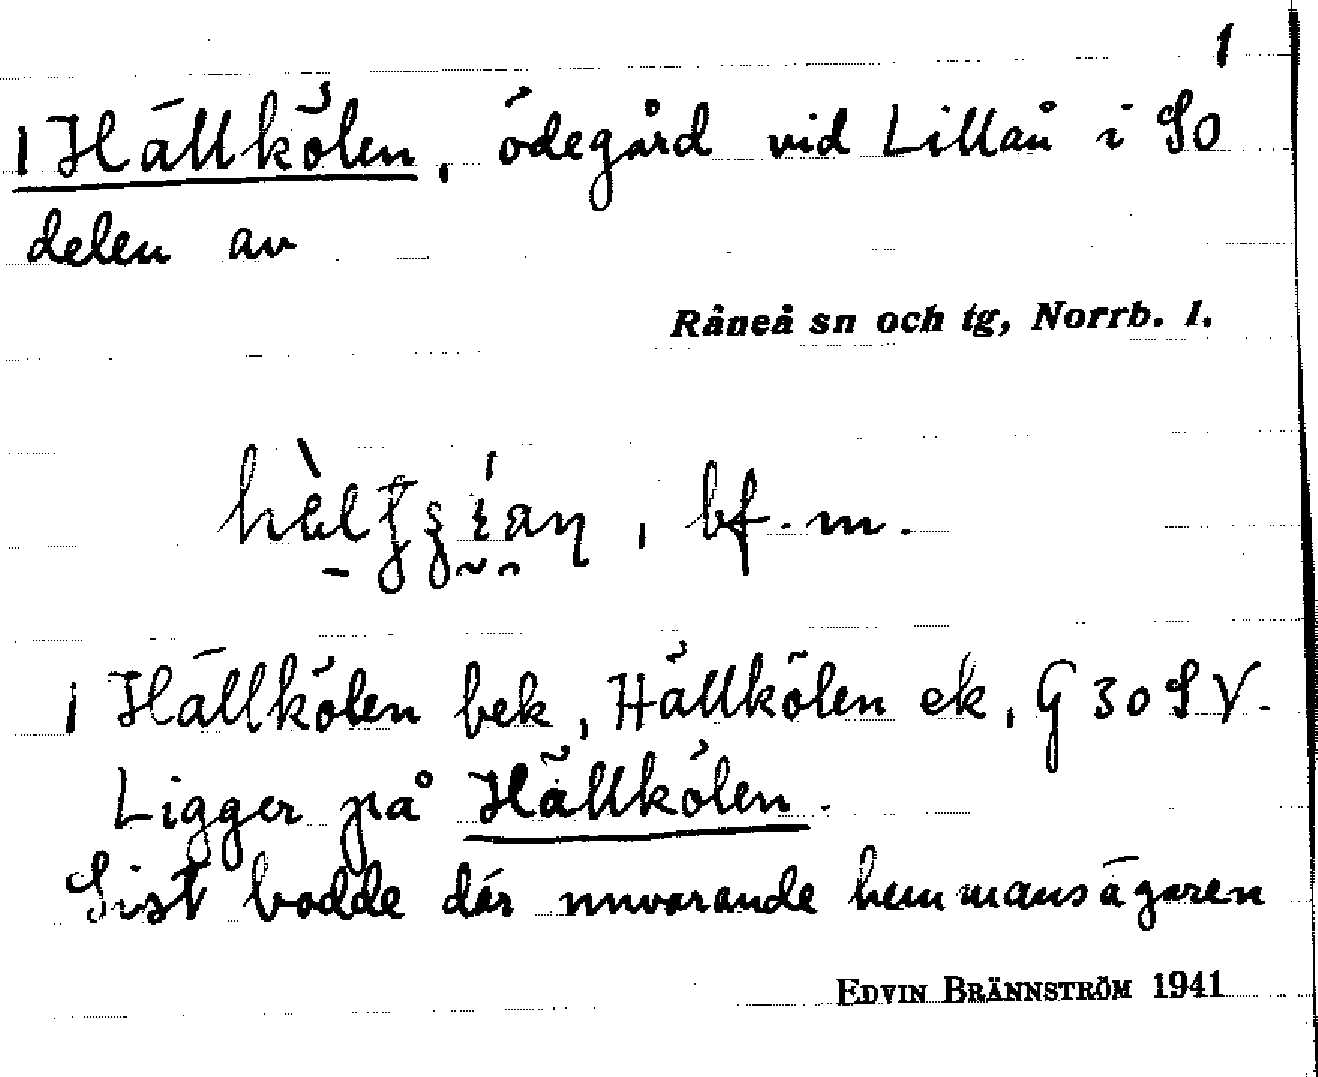 1
1 Hällkölen, ödegård vid Lillån i SO
delen av
Råneå sn och tg, Norrb. l.
bf. m.
1 Hällkölen bek, Hällkölen ek, G 30 SV.
Ligger på Hällkölen.
Sist bodde där nuvarande hemmansägaren
EDVIN BRÄNNSTRÖM 1941